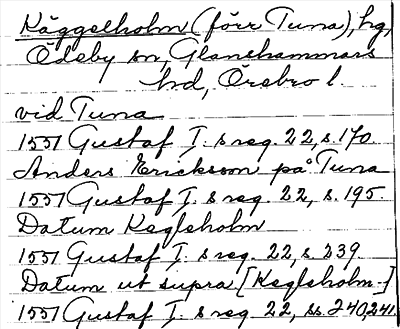 Käggelholm (förr Tuna), hg,
Ödeby sn, Glanshammars
hd, Örebro l.
vid Tuna
1551 Gustaf I. s reg. 22, s. 170.
Anders Ericksson på Tuna
1551 Gustaf I. s reg. 22, s. 195.
Datum Keglsholm
1551 Gustaf I. s reg. 22, s. 239
Datum ut supra [Keglsholm.]
1551 Gustaf I. s reg. 22, ss. 240, 241.